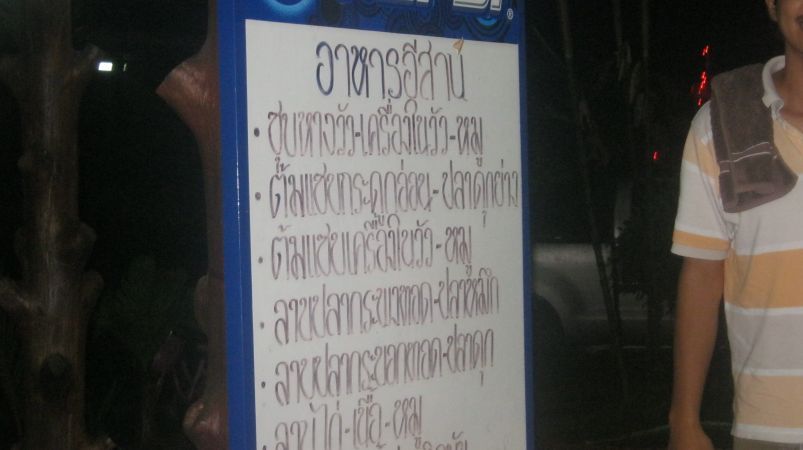 อาหารอีสาน
• ซุบหางวัว-เครื่องในวัว-หมู
• ต้มแซบกระดูกอ่อน-ปลาดุกย่าง
• ต้มแซบเครื่องในวัว-หมู
• ลาบปลากระพงทอด-ปลาหมึก
• ลาบปลากระบอกทอด-ปลาดุก
ลาบไก่-เนื้อ-หมู